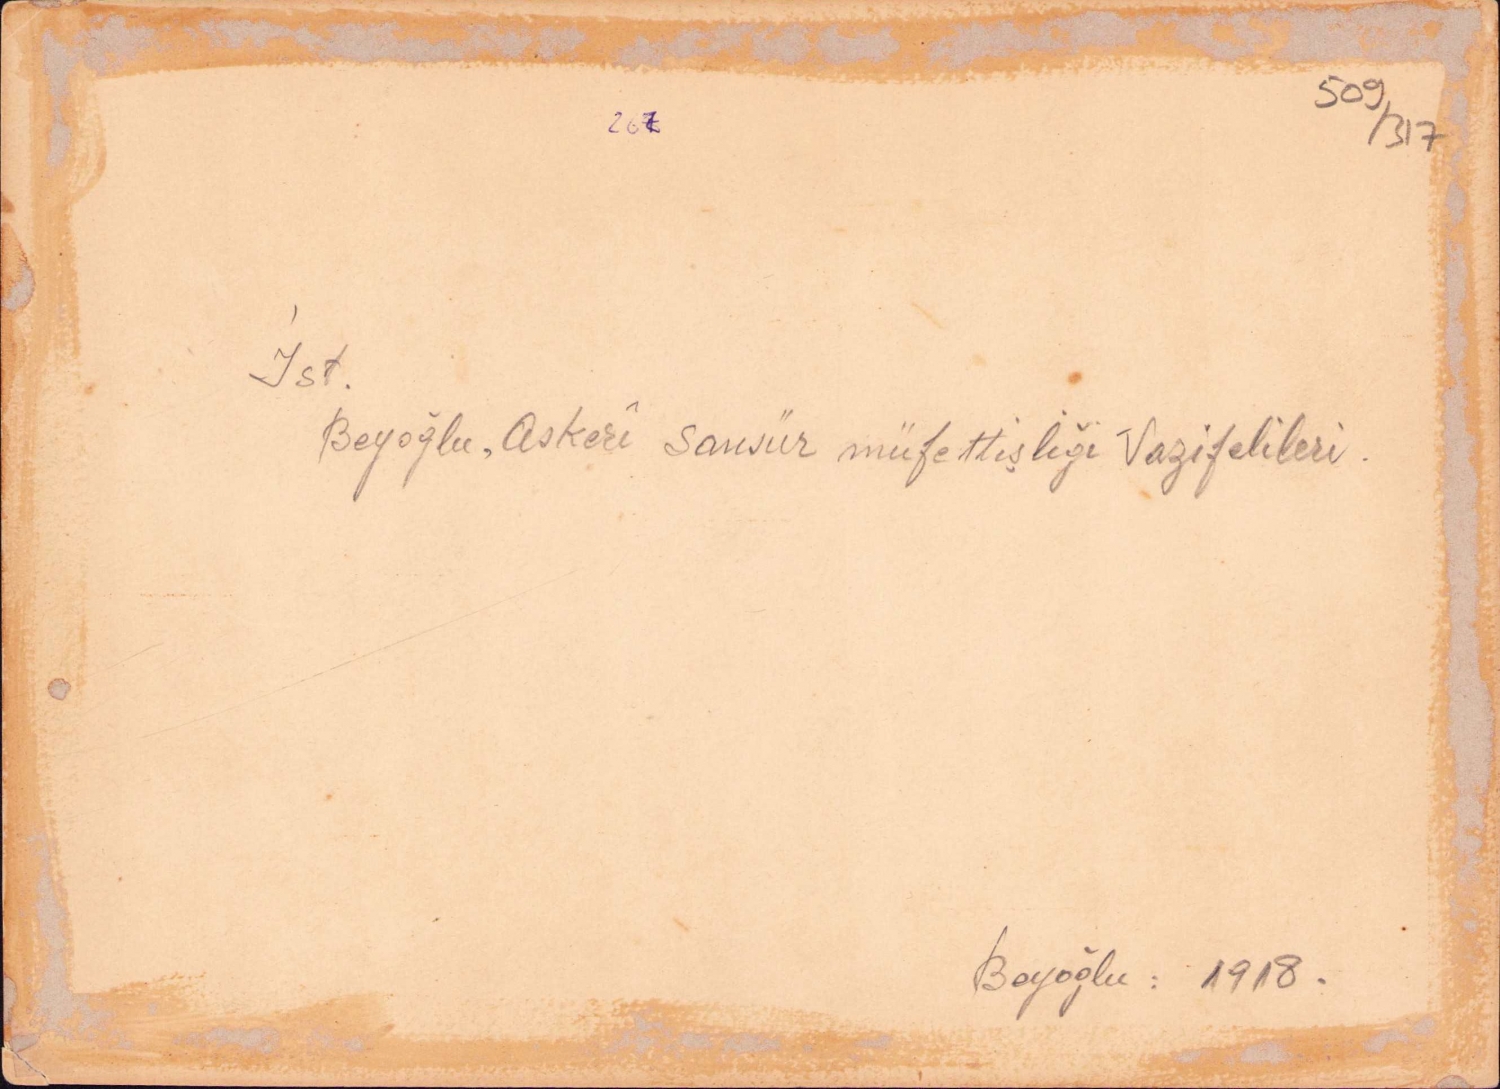 267
509
/317
İst.
Beyoğlu, Askerî Sansür müfettişliği Vazifelileri.
Beyoğlu: 1918.